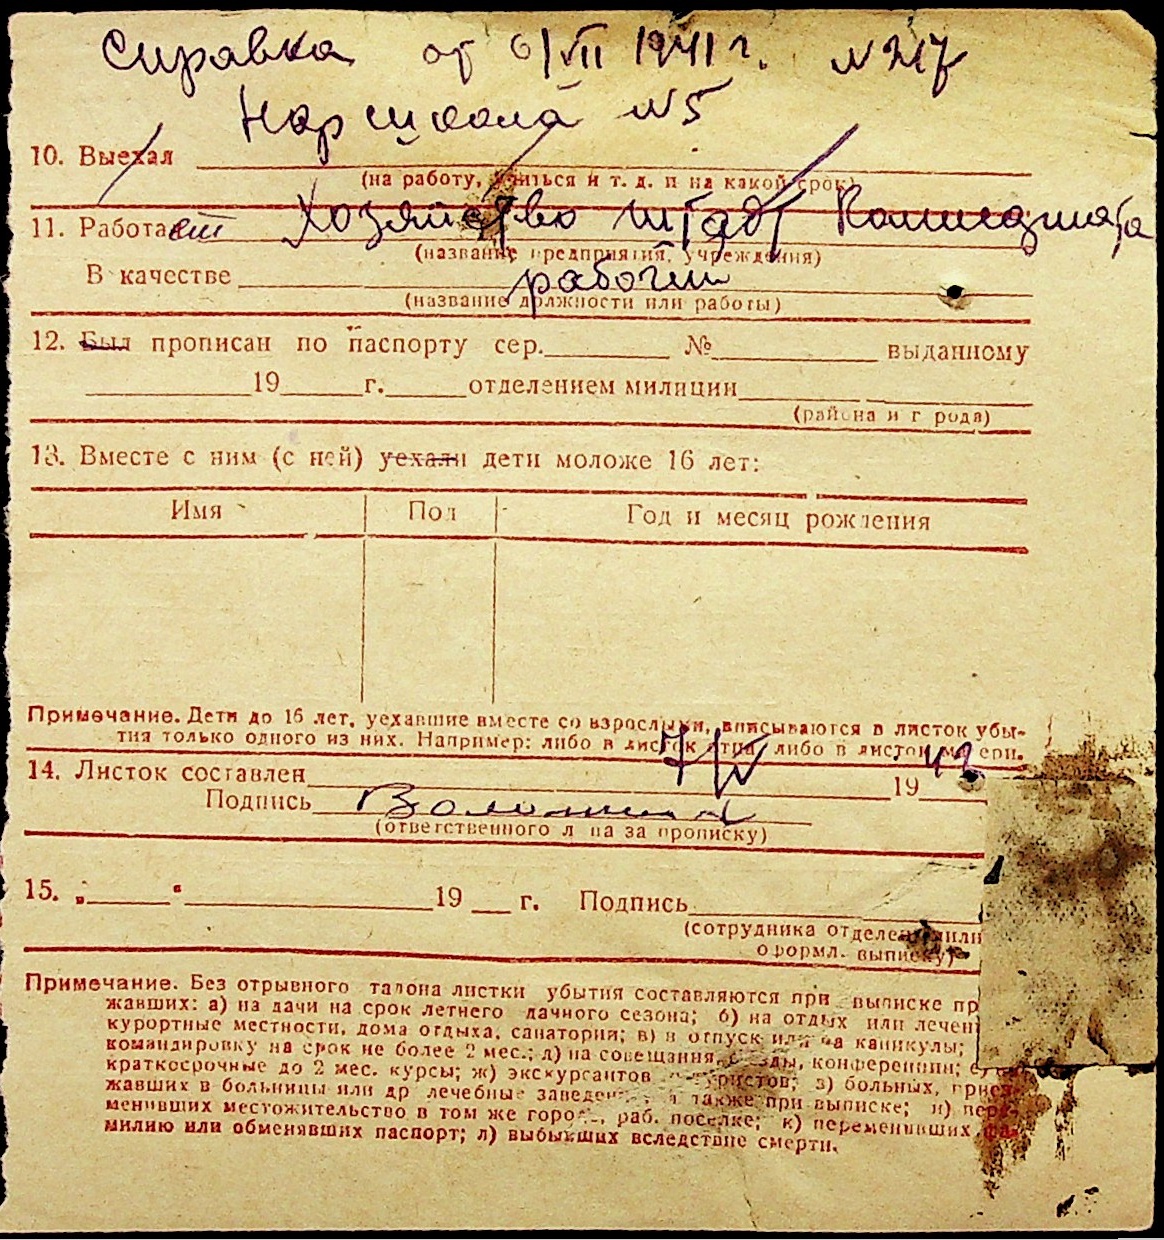 Справка от 6/VII 1941 г. №217
Нар школа №5
10. Выехал
(на работу, учиться и т. д. и на какой срок)
11. Работает Хозяйство штаб
(название предприятия, учреждения)
В качестве рабочий
(название должности или работы)
12. Был прописан по паспорту сер. № выданному
19 г. отделением милиции
(района и города)
13. Вместе с ним (с ней) уехали дети моложе 16 лет:
Имя Пол Год и месяц рождения
Примечание. Дети до 16 лет, уехавшие вместе со взрослыми, вписываются в листок убы-
тия только одного из них. Например: либо в листок отца, либо в листок матери.
14. Листок составлен 7/IV 1942
Подпись
(ответственного лица за прописку)
15. „ “ 19 г. Подпись
(сотрудника отделен мили
оформл. выписку)
Примечание. Без отрывного талона листки убытия составляются при выписке пр
жавших: а) на дачи на срок летнего дачного сезона; б) на отдых или лечен
курортные местности, дома отдыха, санатории; в) в отпуск или на каникулы;
командировку на срок не более 2 мес.; д) на совещания, съезды, конференции; е)
краткосрочные до 2 мес. курсы; ж) экскурсантов и туристов; з) больных, приез-
жавших в больницы или др лечебные заведения, а также при выписке; и) пере-
менивших местожительство в том же городе, раб. поселке; к) переменивших фа-
милию или обменявших паспорт; л) выбывших вследствие смерти.